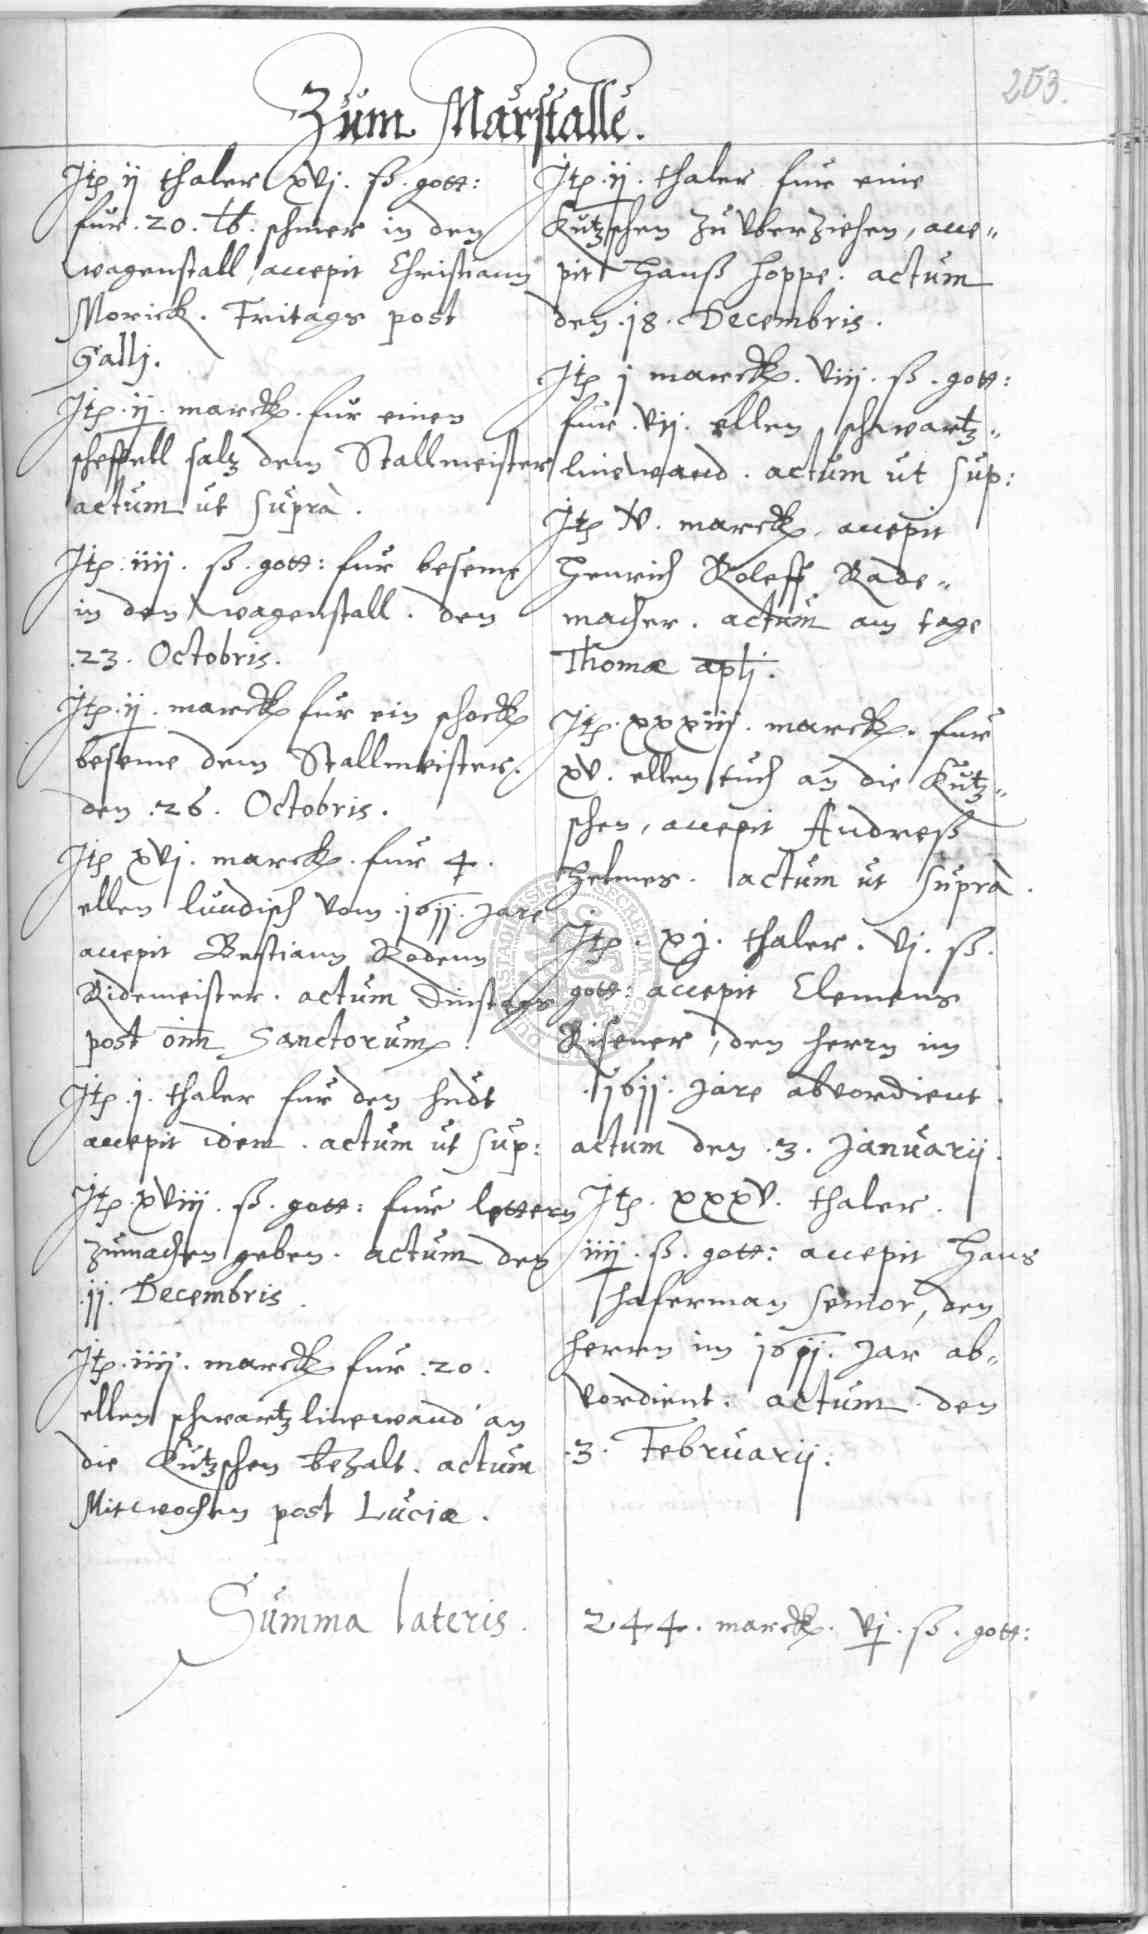 253.
Zum Marstalle.
Itp ij thaler xvj. ß. gott:
fur. 20. lb. schmer in den
wagenstall, accepit Christiann
Morick. Fritags post
Galli.
Itp. ij. marck. fur einen
scheffell saltz dem Stallmeister
actum ut suprà.
Itp. iiij. ß. gott: fur beseme
in den wagenstall. den
.23. Octobris.
Itp. ij. marck fur ein schock
beseme dem Stallmeister.
den .26. Octobris.
Itp xvj. marck. fur 4.
ellen lundisch vom .1611. Jare
accepit Bastiann Rodenn
Ridemeister. actum Dinstags
post oim Sanctorum.
Itp. j. thaler fur den hudt
accepit idem. actum ut sup:
Itp. xviij. ß. gott: fur lettern
zumachen geben. actum den
.11. Decembris.
Itp. iiij. marck fur .20.
ellen schwartz linewand an
die Kutzschen bezalt. actum
Mitwochen post Luciæ.
Itp. ij. thaler fur eine
Kutzschen zu uberziehen, acce„
pit Hanß Hoppe. actum
den .18. Decembris.
Itp j marck. viij. ß. gott:
fur. vij. ellen schwartz„
linewand. actum ut sup:
Itp xv. marck, accepit
Henrich Roleff Rade„
macher. actum am tage
Thomæ aplj.
Itp. xxxiij. marck. fur
xv. ellen tuch an die Kutz„
schen, accepit Andreß
Helmes. actum ut suprà.
Itp. xj. thaler. vj. ß.
gott: accepit Clemens
Risener, den herrn im
.1611. Jare abvordient.
actum den .3. Januarij.
Itp. xxxv. thaler.
iiij. ß. gott: accepit Hans
Haferman senior, den
herrn im 1611. Jar ab„
vordient. actum den
.3. Februarij.
Summa lateris. 244. marck. vj. ß. gott: